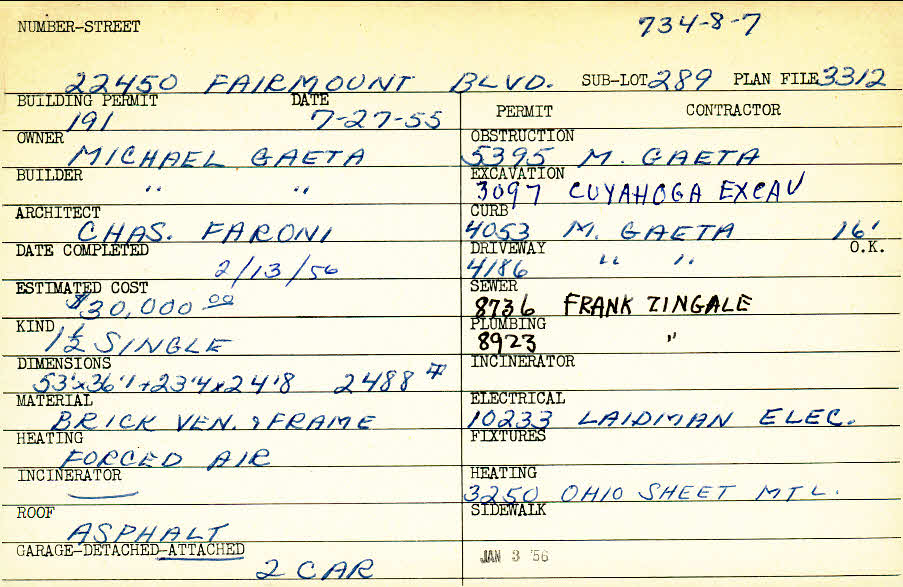 NUMBER-STREET 734-8-7
22450 FAIRMOUNT BLVD. SUB-LOT 289 PLAN FILE 3312
BUILDING PERMIT DATE
191 7-27-55
OWNER
MICHAEL GAETA
BUILDER
" "
ARCHITECT
CHAS. FARONI
DATE COMPLETED
2/13/56
ESTIMATED COST
$30,000 00
KIND
1½ SINGLE
DIMENSIONS
53'x36'1+23'4x24'8 2488
MATERIAL
BRICK VEN. & FRAME
HEATING
FORCED AIR
INCINERATOR
ROOF
ASPHALT
GARAGE-DETACHED-ATTACHED
2 CAR
PERMIT CONTRACTOR
OBSTRUCTION
5395 M. GAETA
EXCAVATION
3097 CUYAHOGA EXCAV
CURB
4053 M. GAETA 16'
DRIVEWAY O.K.
4186 " "
SEWER
8736 FRANK ZINGALE
PLUMBING
8923 "
INCINERATOR
ELECTRICAL
10233 LAIDMAN ELEC.
FIXTURES
HEATING
3250 OHIO SHEET MTL.
SIDEWALK
JAN 3 '56